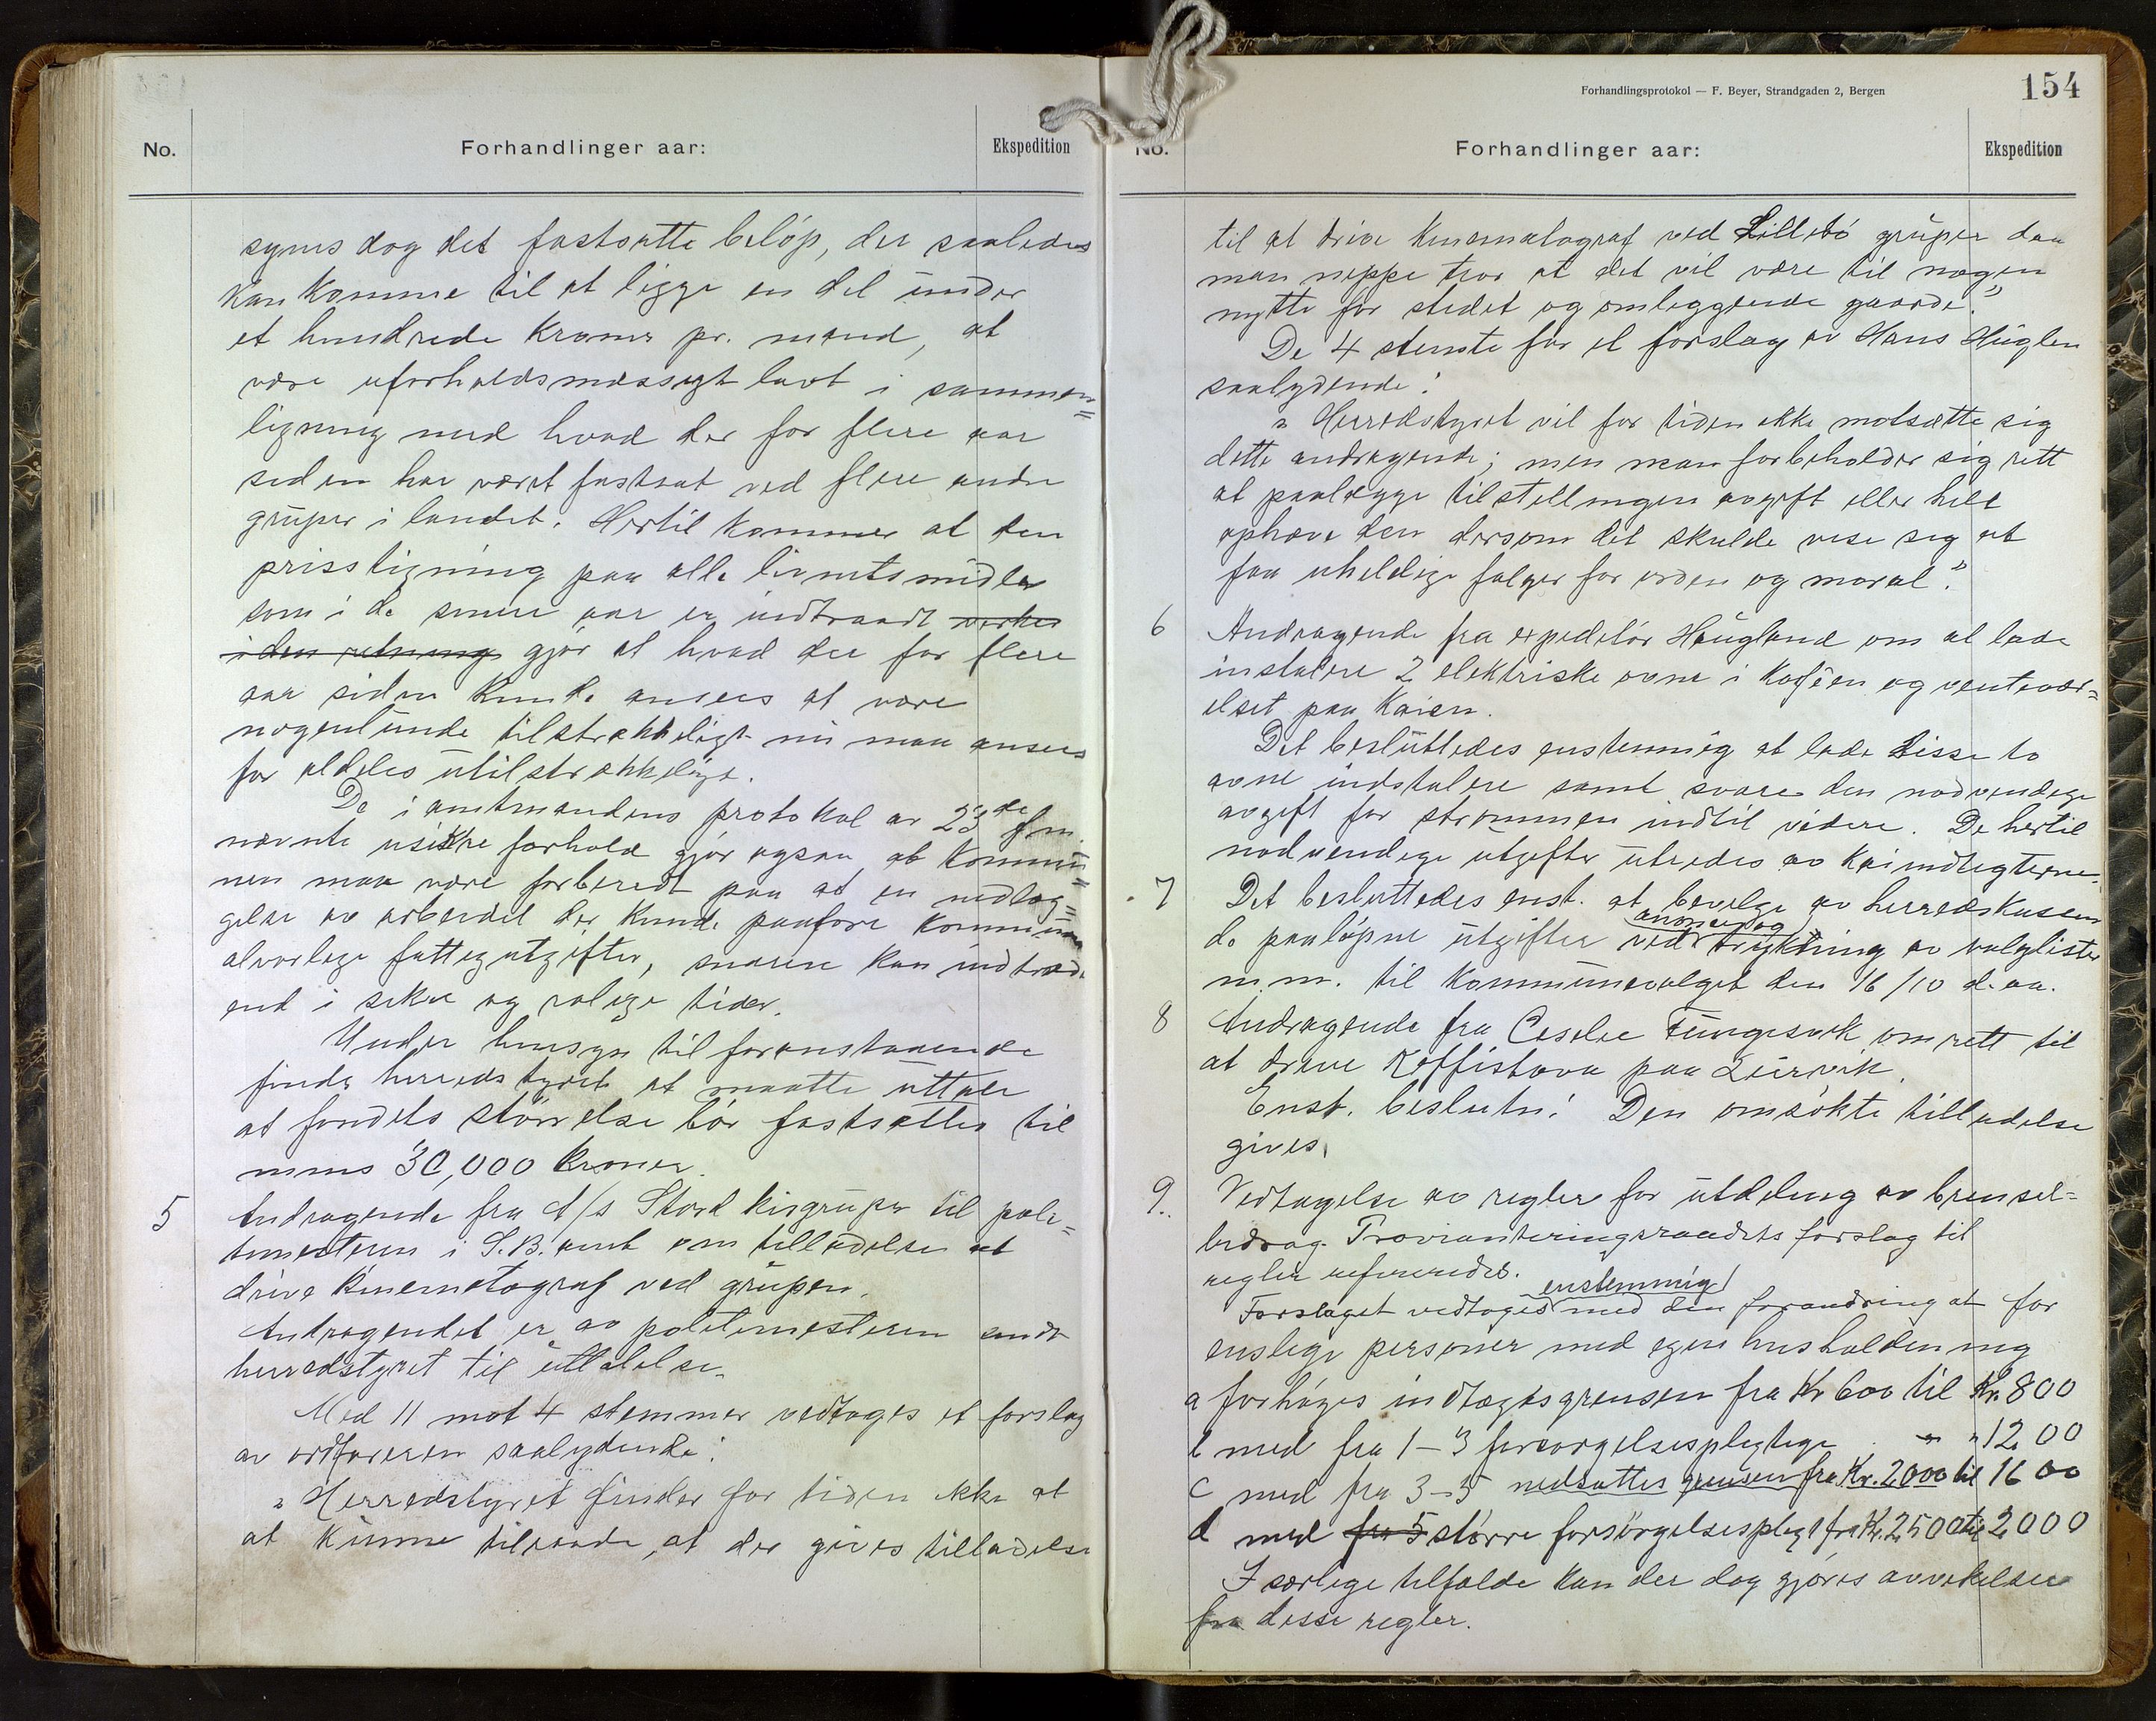 No.
Forhandlinger aar:
Ekspedition
synes dog det fastsatte beløp, der saaledes
kan komme til at ligge en del under
et hundrede kroner pr. mand, at
være uforholdsmæssigt lavt i sammen=
ligning med hvad der for flere aar
siden har været fastsat ved flere andre
gruper i landet. Hertil kommer at den
prisstigning paa alle livnetsmidler
som i de senere aar er indtraadt virker
i den retning gjør at hvad der for flere
aar siden kunde ansees at være
nogenlunde tilstrekkeligt nu maa ansees
for aldeles utilstrekkeligt.
De i amtmandens protokol av 23de f.m.
nævnte usikre forhold gjør ogsaa at kommu=
nen maa være forberedt paa at en nedlæg=
gelse av arbeidet der kunde paaføre kommunen
alvorlige fattigutgifter, snarere kan indtræde
end i sikre og rolige tider.
Under hensyn til foranstaaende
finder herredstyret at maatte uttale
at fondets størrelse bør fastsættes til
minst 30,000 kroner.
5 Andragende fra A/s Stord kisgruper til poli=
timesteren i S.B. amt om tilladelse at
drive kinematograf ved grupen.
Andragendet er av politimesteren sendt
herredstyret til uttalelse.
Med 11 mot 4 stemmer vedtoges et forslag
av ordføreren saalydende:
„Herredstyret finder for tiden ikke at
at kunne tilraade, at der gives tilladelse
Forhandlingsprotokol — F. Beyer, Strandgaden 2, Bergen
154
No.
Forhandlinger aar:
Ekspedition
til at drive kinematograf ved Lillebø gruper daa
man neppe tror at det vil være til nogen
nytte for stedet og omliggende gaarde."
De 4 stemte for et forslag av Hans Huglen
saalydende:
„Herredstyret vil for tiden ikke motsætte sig
dette andragende; men man forbeholder sig rett
at paalegge tilstellingen avgift eller helt
ophæve den dersom det skulde vise sig at
faa uheldige følger for orden og moral".
6 Andragende fra expeditør Haugland om at lade
instalere 2 elektriske ovne i Kaféen og ventevær=
elset paa Kaien.
Det besluttedes enstemmig at lade disse to
ovne indstalere samt svare den nødvendige
avgift for strømmen indtil videre. De hertil
nødvendige utgifter utredes av kaiindtegterne.
7 Det besluttedes enst. at bevilge av herredskassen
de paaløpne utgifter ved annonse og trykning av valglister
m.m. til kommunevalget den 16/10 d. aa.
8 Andragende fra Ceselie Tungesvik om rett til
at drive Kaffistova paa Leirvik.
Enst. beslutn: Den omsøkte tilladelse
gives.
9. Vedtagelse av regler for utdeling av brensel=
bidrag. Provianteringsraadets forslag til
regler refereredes.
Forslaget vedtoges enstemmig med den forandring at for
enslige personer med egen husholdening
a forhøges indtægtsgrensen fra Kr 600 til Kr. 800
b med fra 1–3 forsorgelsesplegtige „ „ 1200
c med fra 3–5 nedsættes grensen fra Kr. 2000 til 1600
d med fra 5 større forsørgelsesplegt fra Kr. 2500 til 2000
I særlige tilfælde kan der dog gjøres avvikelser
fra disse regler.